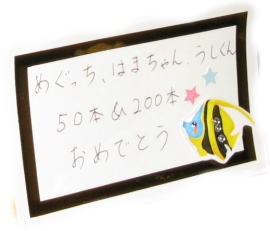 めぐっち、はまちゃん、うしくん
50本&200本
おめでとう